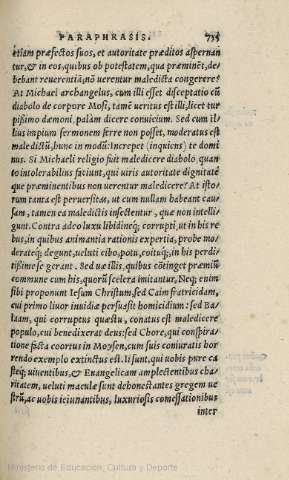 PARAPHRASIS. 735
etiam præfectos suos, et autoritate præditos aspernan
tur, & in eos, quibus ob potestatem, qua præminēt, de/
bebant reuerentiā, nō uerentur maledicta congerere?
At Michael archangelus, cum illi esset disceptatio cū
diabolo de corpore Mosi, tamē ueritus est illi, licet tur
pißimo dæmoni, palàm dicere conuicium. Sed cum il/
lius impium sermonem ferre non posset, moderatus est
maledictū, hunc in modū: Increpet (inquiens) te domi
nus. Si Michaeli religio fuit maledicere diabolo, quan
to intolerabilius faciunt, qui uiris autoritate dignitatē
que præminentibus non uerentur maledicere? At isto/
rum tanta est peruersitas, ut cum nullam habeant cau/
sam, tamen ea maledictis insectentur, quæ non intelli/
gunt. Contra adeo luxu libidineq; corrupti, ut in his re
bus, in quibus animantia rationis expertia, probe mo/
derateq; degunt, ueluti cibo, potu, coituq;, in his perdi/
tißime se gerant. Sed uæ illis, quibus cōtinget præmiū
commune cum his, quorū scelera imitantur. Neq; enim
sibi proponunt Iesum Christum, sed Cain fratricidam,
cui primo liuor inuidia persuasit homicidium: sed Ba/
laam, qui corruptus quæstu, conatus est maledicere
populo, cui benedixerat deus: sed Chore, qui conspira/
tione facta coortus in Moysen, cum suis coniuratis hor
rendo exemplo extinctus est. Ii sunt, qui uobis pure ca
steq; uiuentibus, & Euangelicam amplectentibus cha/
ritatem, ueluti maculæ sunt dehonestantes gregem ue
strū, ac uobis ieiunantibus, luxuriosis comessationibus
inter
Ministerio de Educación, Cultura y Deporte